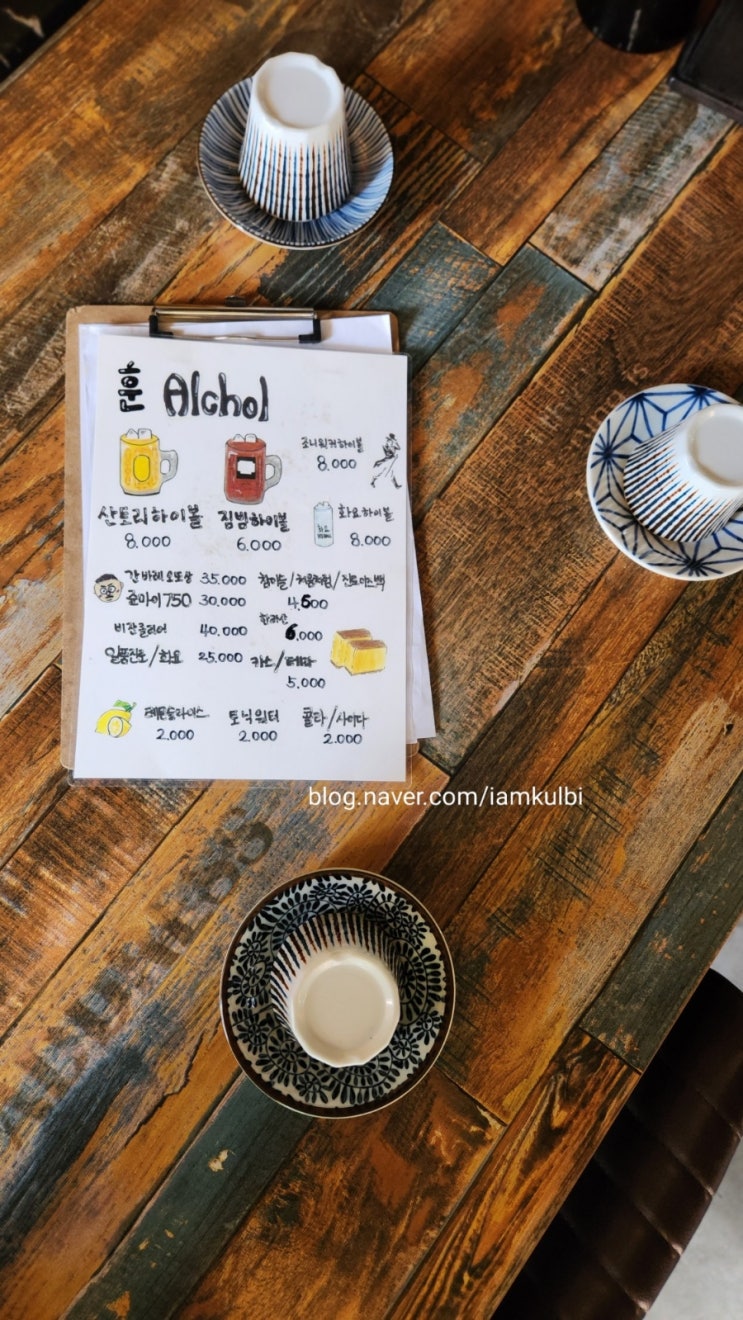 Alchol
조니워커하이볼
8.000
산토리하이볼 짐빔하이볼 화요하이볼
8.000 6.000 8.000
간바레오또상 35.000 참이슬/처음처럼/진로이즈백
준마이750 30.000 4.500
한라산
40.000 6.000
일품진로/화요 25.000 카스/테라
5.000
레몬슬라이스 토닉워터 콜라/사이다
2.000 2.000 2.000
blog.naver.com/iamkulbi